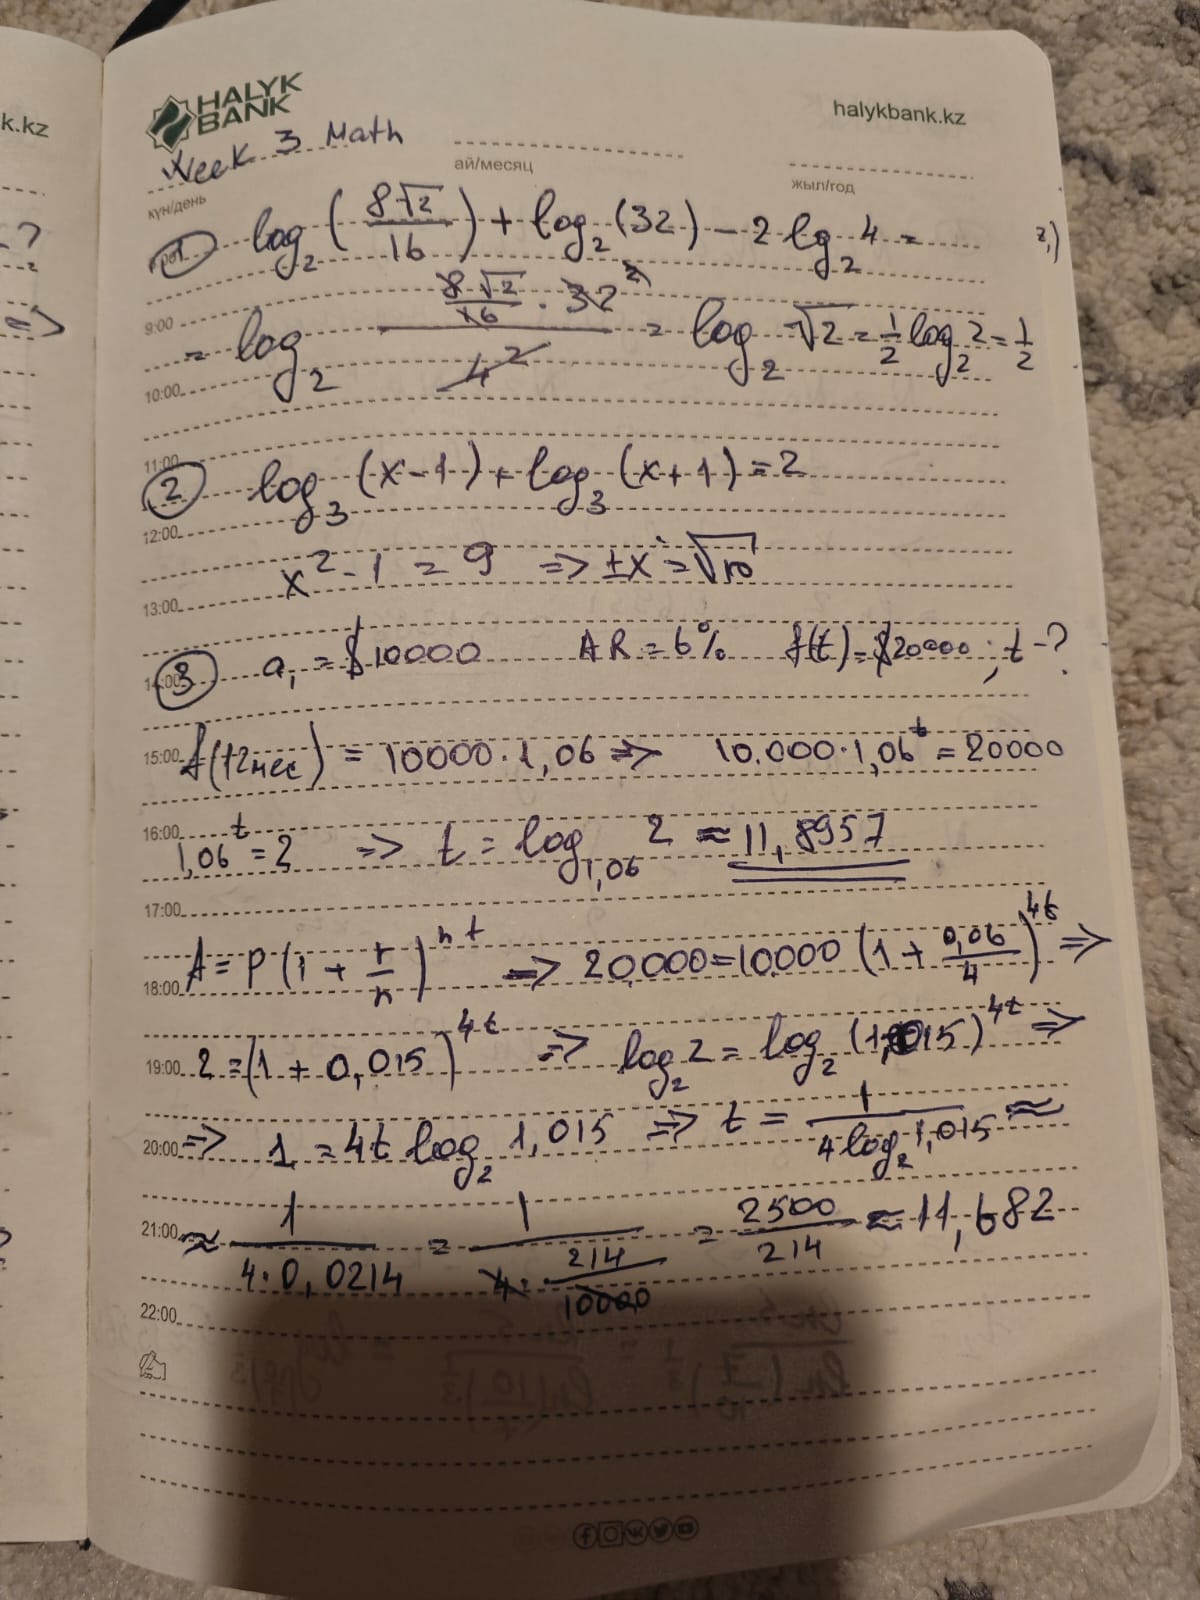 k.kz
?
=>
HALYK
BANK
halykbank.kz
Week 3 Math
ай/месяц
жыл/год
күн/день
1 log₂(8√2/16) + log₂(32) - 2 lg₂ 4 =
9:00
= log₂ (8√2/16 · 32 2)/4² = log₂ √2 = 1/2 log₂ 2 = 1/2
10:00
11:00
2 log₃(x-1) + log₃(x+1) = 2
12:00
x² - 1 = 9 => ±x = √10
13:00
3 a₁ = $10000 AR = 6% f(t) = $20000 ; t - ?
14:00
15:00 f(12мес) = 10000 · 1,06 => 10.000 · 1,06^t = 20000
16:00
1,06^t = 2 => t = log₁,₀₆ 2 ≈ 11,8957
17:00
A = P(1 + r/n)^nt => 20,000 = 10,000 (1 + 0,06/4)^4t =>
18:00
19:00 2 = (1 + 0,015)^4t => log₂2 = log₂(1,015)^4t =>
20:00 => 1 = 4t log₂ 1,015 => t = 1/(4 log₂ 1,015) ≈
21:00 ≈ 1/(4 · 0,0214) = 1/(4 · 214/10000) = 2500/214 ≈ 11,682
22:00